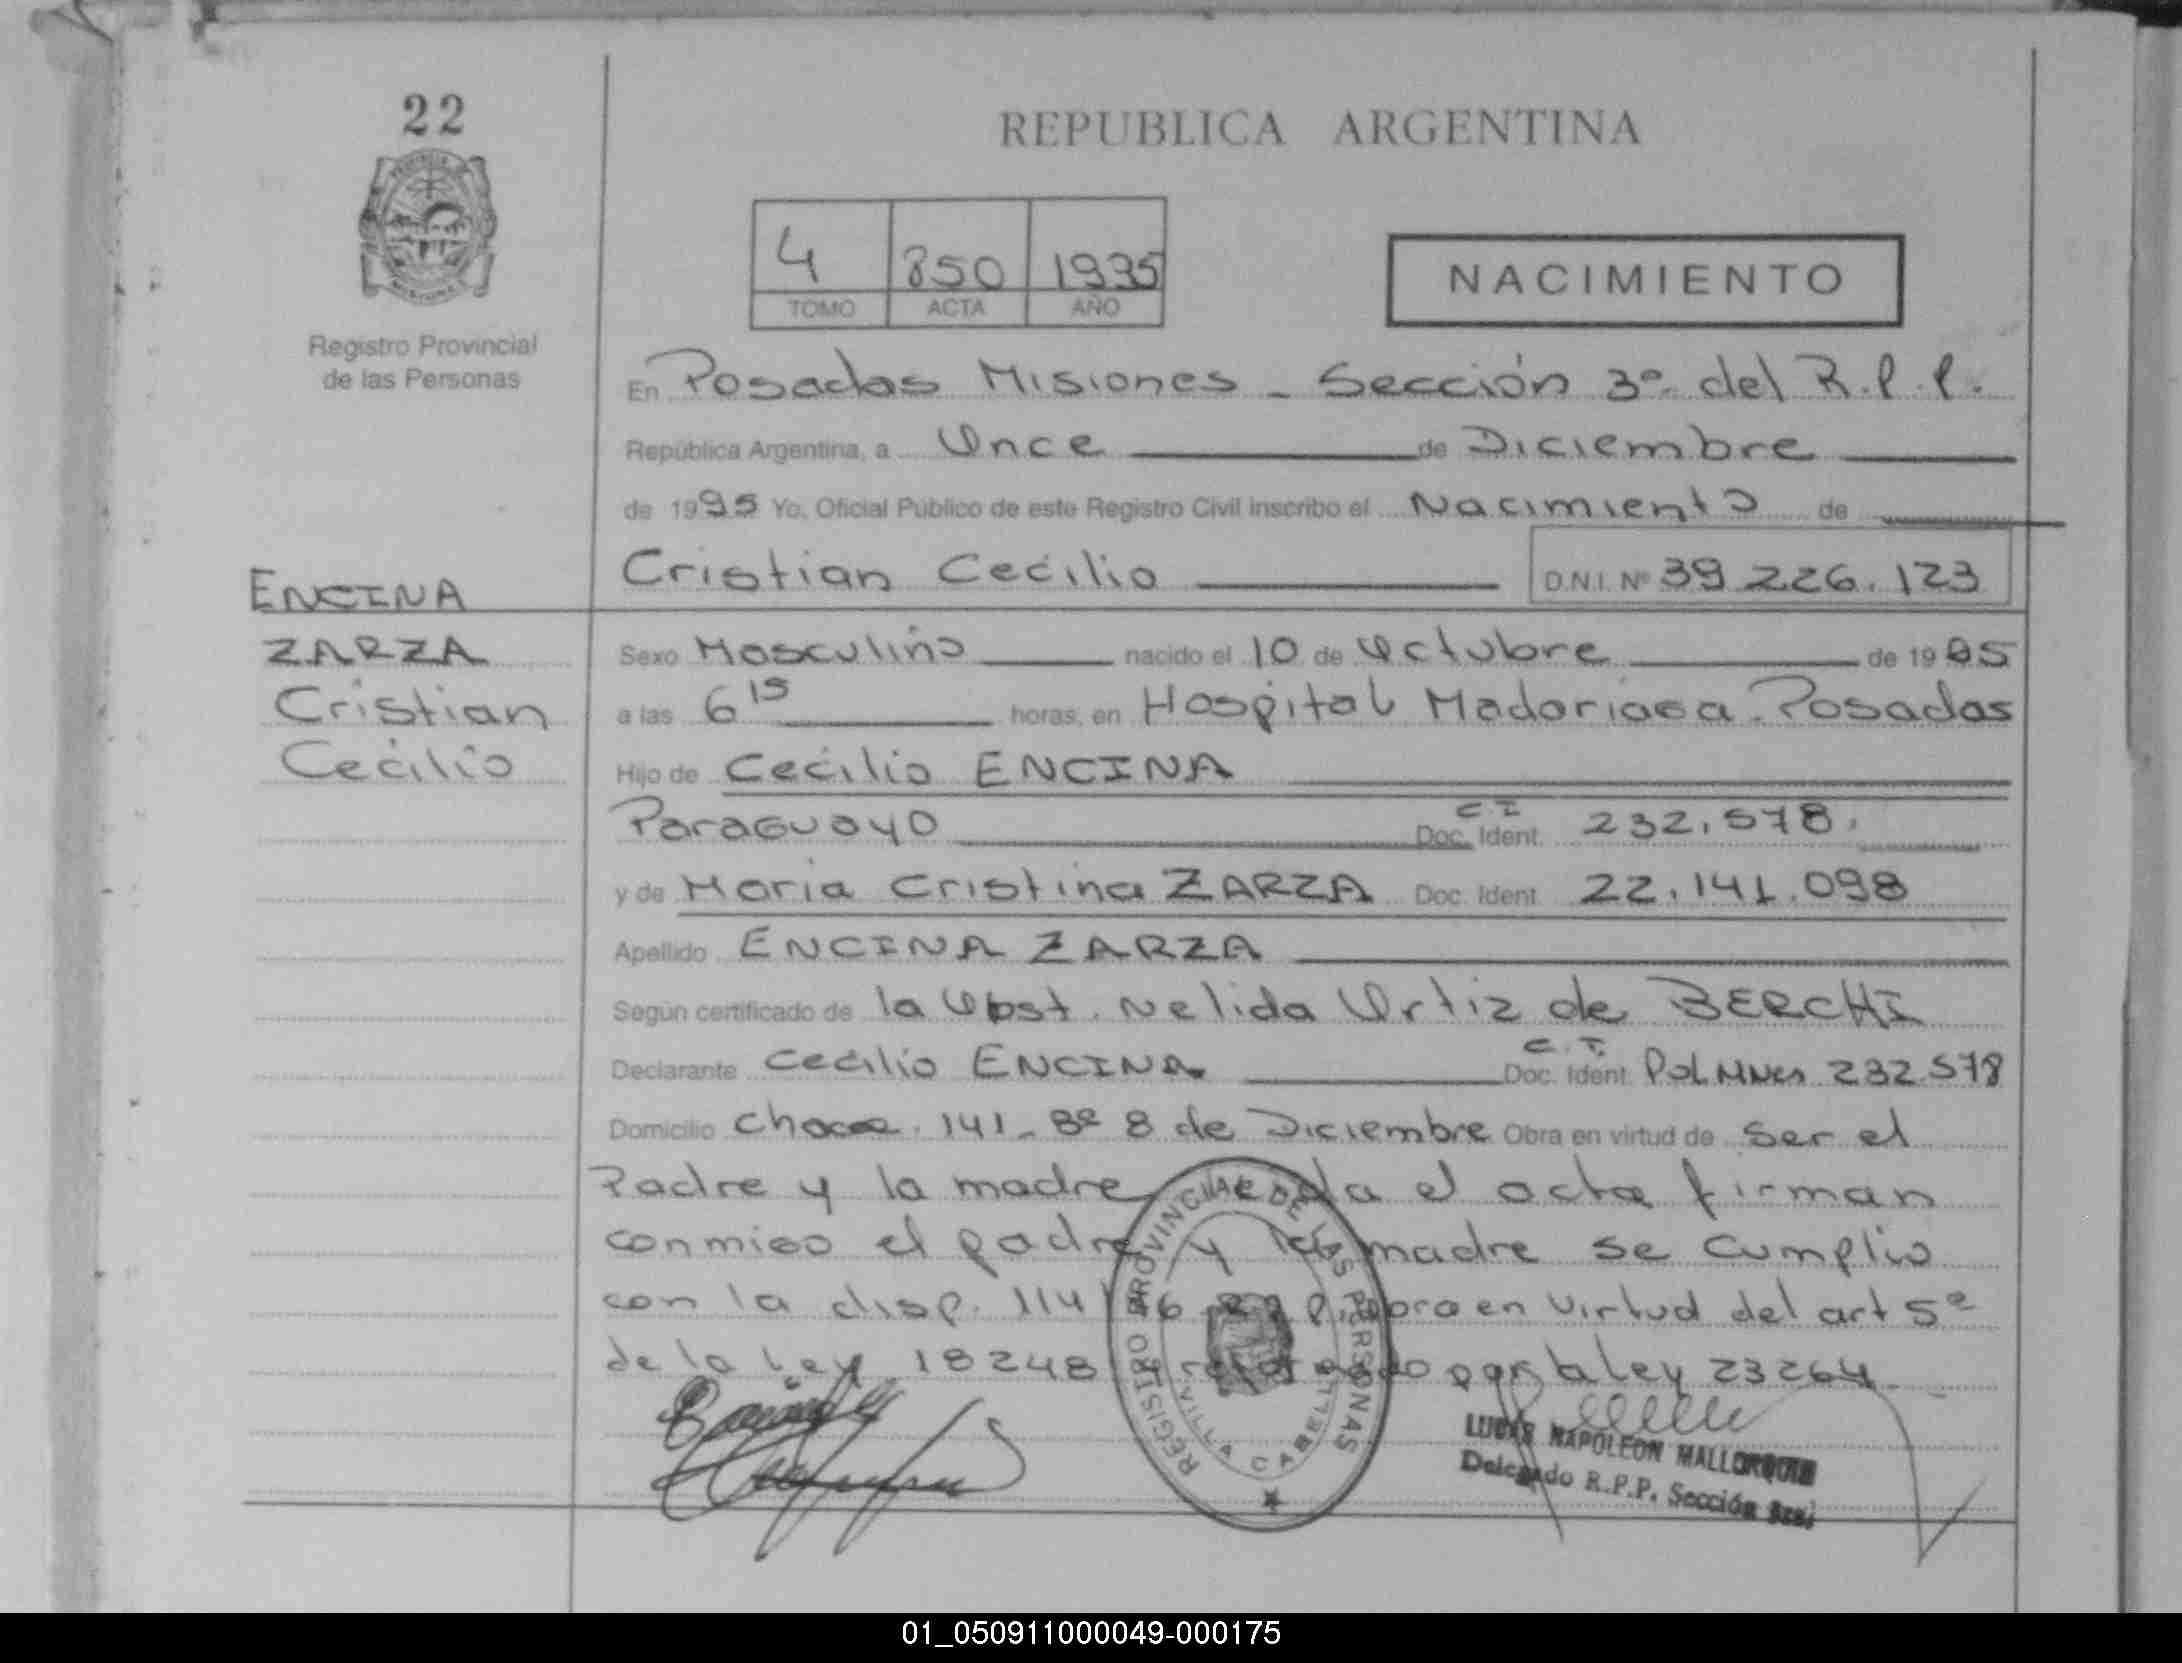 22
REPUBLICA ARGENTINA
4 850 1995
TOMO ACTA AÑO
NACIMIENTO
Registro Provincial
de las Personas
En Posadas Misiones - Sección 3º del R.P.P.
República Argentina, a Once de Diciembre
de 1995 Yo, Oficial Público de este Registro Civil inscribo el Nacimiento de
Cristian Cecilio D.N.I. Nº 39 226.123
ENCINA
ZARZA
Cristian
Cecilio
Sexo Masculino nacido el 10 de Octubre de 1995
a las 6 15 horas, en Hospital Madariaga. Posadas
Hijo de Cecilio ENCINA
Paraguayo C.I Doc. Ident. 232.578.
y de Maria Cristina ZARZA Doc. Ident. 22.141.098
Apellido ENCINA ZARZA
Según certificado de la Obst. Nelida Ortiz de BERCHI
Declarante Cecilio ENCINA C.I. Doc. Ident. Pol Mnes 232.578
Domicilio Chacra 141 - Bº 8 de Diciembre Obra en virtud de ser el
Padre y la madre leida el acta firman
conmigo el padre y la madre se cumplio
con la disp. 114 R.P.P. obra en virtud del art 5º
de la Ley 18248 por la ley 23264
REGISTRO PROVINCIAL DE LAS PERSONAS
VILLA CABELLO
LUCAS NAPOLEON MALLORQUIN
Delegado R.P.P. Sección 3ra.
01_050911000049-000175